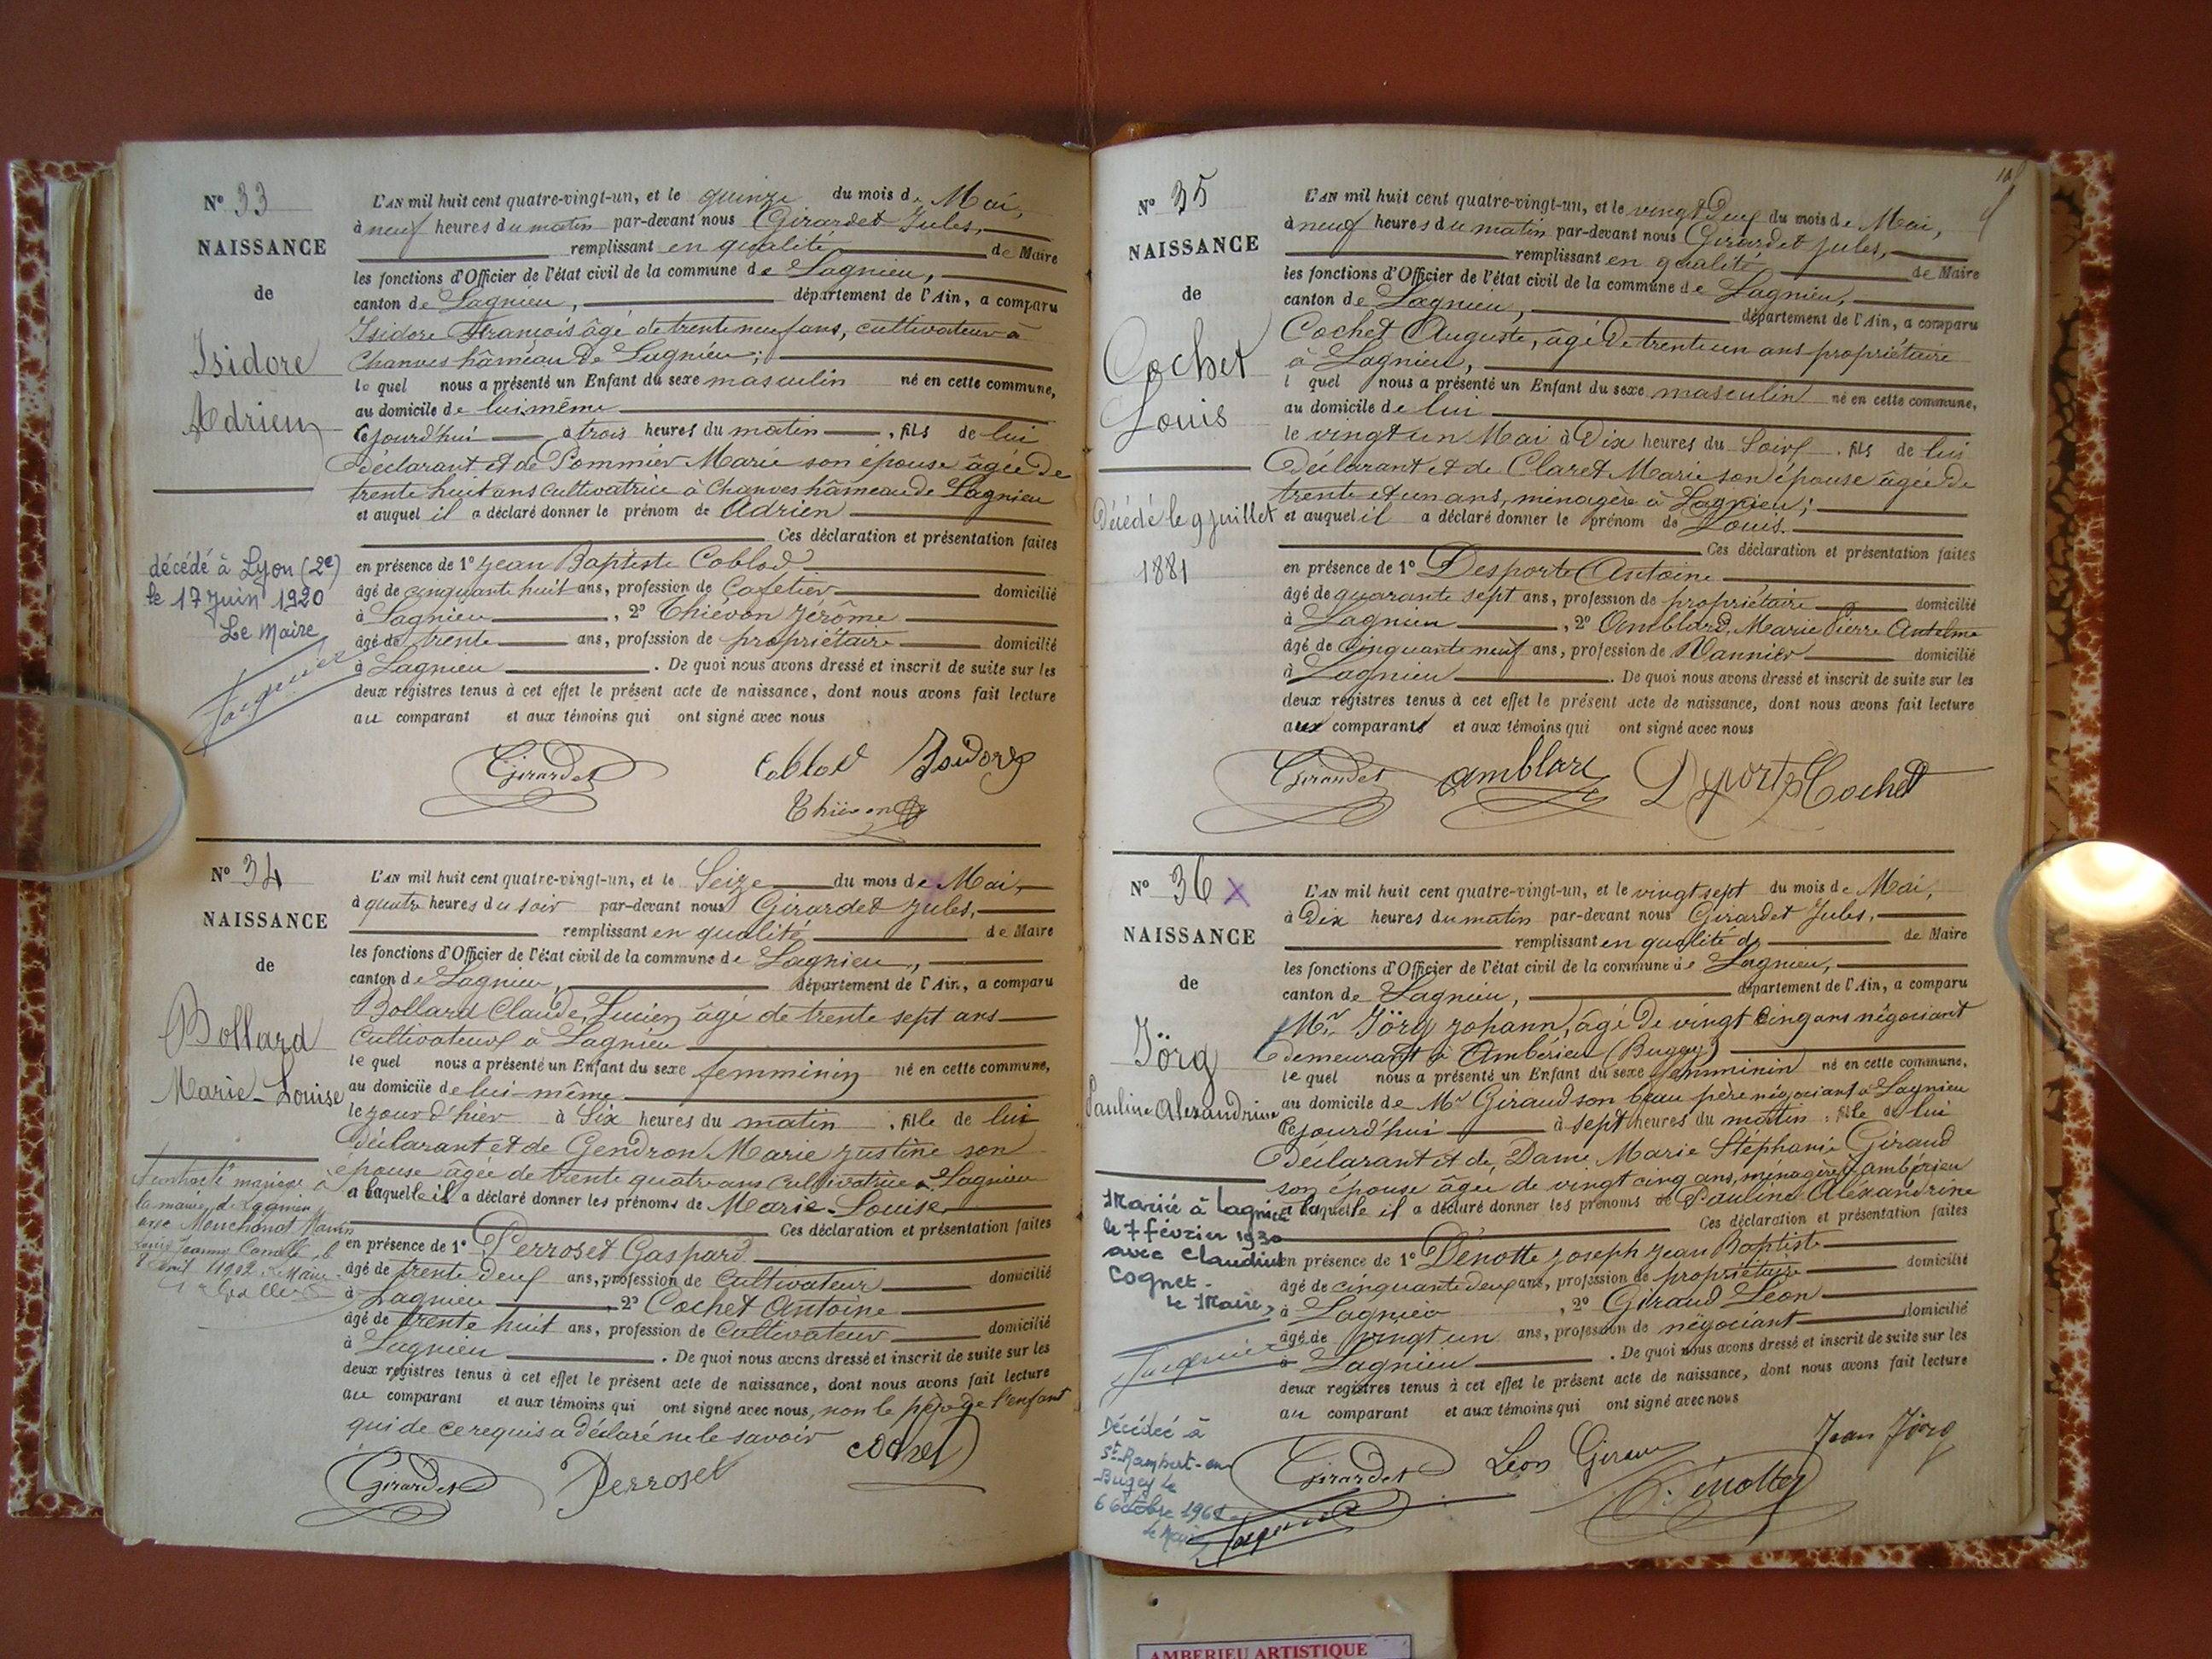 Nº 33
NAISSANCE
de
Isidore
Adrien
décédé à Lyon (2e)
le 17 Juin 1920
Le Maire
L'AN mil huit cent quatre-vingt-un, et le quinze du mois de Mai,
à neuf heures du matin par-devant nous Girardet Jules,
remplissant en qualité de Maire
les fonctions d'Officier de l'état civil de la commune de Lagnieu,
canton de Lagnieu, département de l'Ain, a comparu
Isidore François âgé de trente neuf ans, cultivateur à
Chanves hâmeau de Lagnieu;
le quel nous a présenté un Enfant du sexe masculin né en cette commune,
au domicile de lui même
Cejourd'hui à trois heures du matin, fils de lui
déclarant et de Pommier Marie son épouse âgée de
trente huit ans cultivatrice à Chanves hâmeau de Lagnieu
et auquel il a déclaré donner le prénom de Adrien
Ces déclaration et présentation faites
en présence de 1º Jean Baptiste Coblod
âgé de cinquante huit ans, profession de Cafetier domicilié
à Lagnieu, 2º Thiévon Jérôme
âgé de trente ans, profession de propriétaire domicilié
à Lagnieu. De quoi nous avons dressé et inscrit de suite sur les
deux registres tenus à cet effet le présent acte de naissance, dont nous avons fait lecture
au comparant et aux témoins qui ont signé avec nous
Girardet Coblod Isidore
Thiévon
Nº 34
NAISSANCE
de
Bollard
Marie-Louise
L'AN mil huit cent quatre-vingt-un, et le Seize du mois de Mai,
à quatre heures du soir par-devant nous Girardet Jules,
remplissant en qualité de Maire
les fonctions d'Officier de l'état civil de la commune de Lagnieu,
canton de Lagnieu, département de l'Ain, a comparu
Bollard Claude, Lucien âgé de trente sept ans
Cultivateur à Lagnieu
le quel nous a présenté un Enfant du sexe femminin né en cette commune,
au domicile de lui-même
le jour d'hier à Six heures du matin, fille de lui
déclarant et de Gendron Marie Justine son
épouse âgée de trente quatre ans Cultivatrice à Lagnieu
et à laquelle il a déclaré donner les prénoms de Marie-Louise
Ces déclaration et présentation faites
en présence de 1º Perroset Gaspard
âgé de trente deux ans, profession de Cultivateur domicilié
à Lagnieu, 2º Cochet Antoine
âgé de trente huit ans, profession de Cultivateur domicilié
à Lagnieu. De quoi nous avons dressé et inscrit de suite sur les
deux registres tenus à cet effet le présent acte de naissance, dont nous avons fait lecture
au comparant et aux témoins qui ont signé avec nous, non le père de l'enfant
qui de ce requis a déclaré ne le savoir
Girardet Perroset Cochet
Nº 35
NAISSANCE
de
Cochet
Louis
Décédé le 9 juillet
1881
L'AN mil huit cent quatre-vingt-un, et le vingt Deux du mois de Mai,
à neuf heures du matin par-devant nous Girardet Jules,
remplissant en qualité de Maire
les fonctions d'Officier de l'état civil de la commune de Lagnieu,
canton de Lagnieu, département de l'Ain, a comparu
Cochet Auguste, âgé de trente un ans propriétaire
à Lagnieu,
l quel nous a présenté un Enfant du sexe masculin né en cette commune,
au domicile de lui
le vingt un Mai à Dix heures du Soir, fils de lui
Déclarant et de Claret Marie son épouse âgée de
trente et un ans, ménagère à Lagnieu;
et auquel il a déclaré donner le prénom de Louis.
Ces déclaration et présentation faites
en présence de 1º Desporte Antoine
âgé de quarante sept ans, profession de propriétaire domicilié
à Lagnieu, 2º Amblard, Marie Pierre Anselme
âgé de Cinquante neuf ans, profession de Vannier domicilié
à Lagnieu. De quoi nous avons dressé et inscrit de suite sur les
deux registres tenus à cet effet le présent acte de naissance, dont nous avons fait lecture
aux comparants et aux témoins qui ont signé avec nous
Girardet amblard Cochet
Nº 36 X
NAISSANCE
de
Jörg
Pauline Alexandrine
Mariée à Lagnieu
le 7 février 1930
avec Claudius
Cognet.
le Maire,
Décédée à
St Rambert-en-
Bugey le
6 Octobre
le Maire
L'AN mil huit cent quatre-vingt-un, et le vingt sept du mois de Mai,
à Dix heures du matin par-devant nous Girardet Jules,
remplissant en qualité de de Maire
les fonctions d'Officier de l'état civil de la commune de Lagnieu,
canton de Lagnieu, département de l'Ain, a comparu
Mr Jörg Johann, âgé de vingt cinq ans négociant
demeurant à Ambérieu (Bugey)
le quel nous a présenté un Enfant du sexe femminin né en cette commune,
au domicile de Mr Giraud son beau père négociant à Lagnieu
Cejourd'hui à sept heures du matin, fille de lui
Déclarant et de Dame Marie Stéphanie Giraud
son épouse âgée de vingt cinq ans, ménagère à ambérieu
et à laquelle il a déclaré donner les prénoms de Pauline Alexandrine
Ces déclaration et présentation faites
en présence de 1º Dénotte Joseph Jean Baptiste
âgé de cinquante deux ans, profession de propriétaire domicilié
à Lagnieu, 2º Giraud Léon
âgé de vingt un ans, profession de négociant domicilié
à Lagnieu. De quoi nous avons dressé et inscrit de suite sur les
deux registres tenus à cet effet le présent acte de naissance, dont nous avons fait lecture
au comparant et aux témoins qui ont signé avec nous
Girardet Léon Giraud Jean Jörg
AMBERIEU ARTISTIQUE